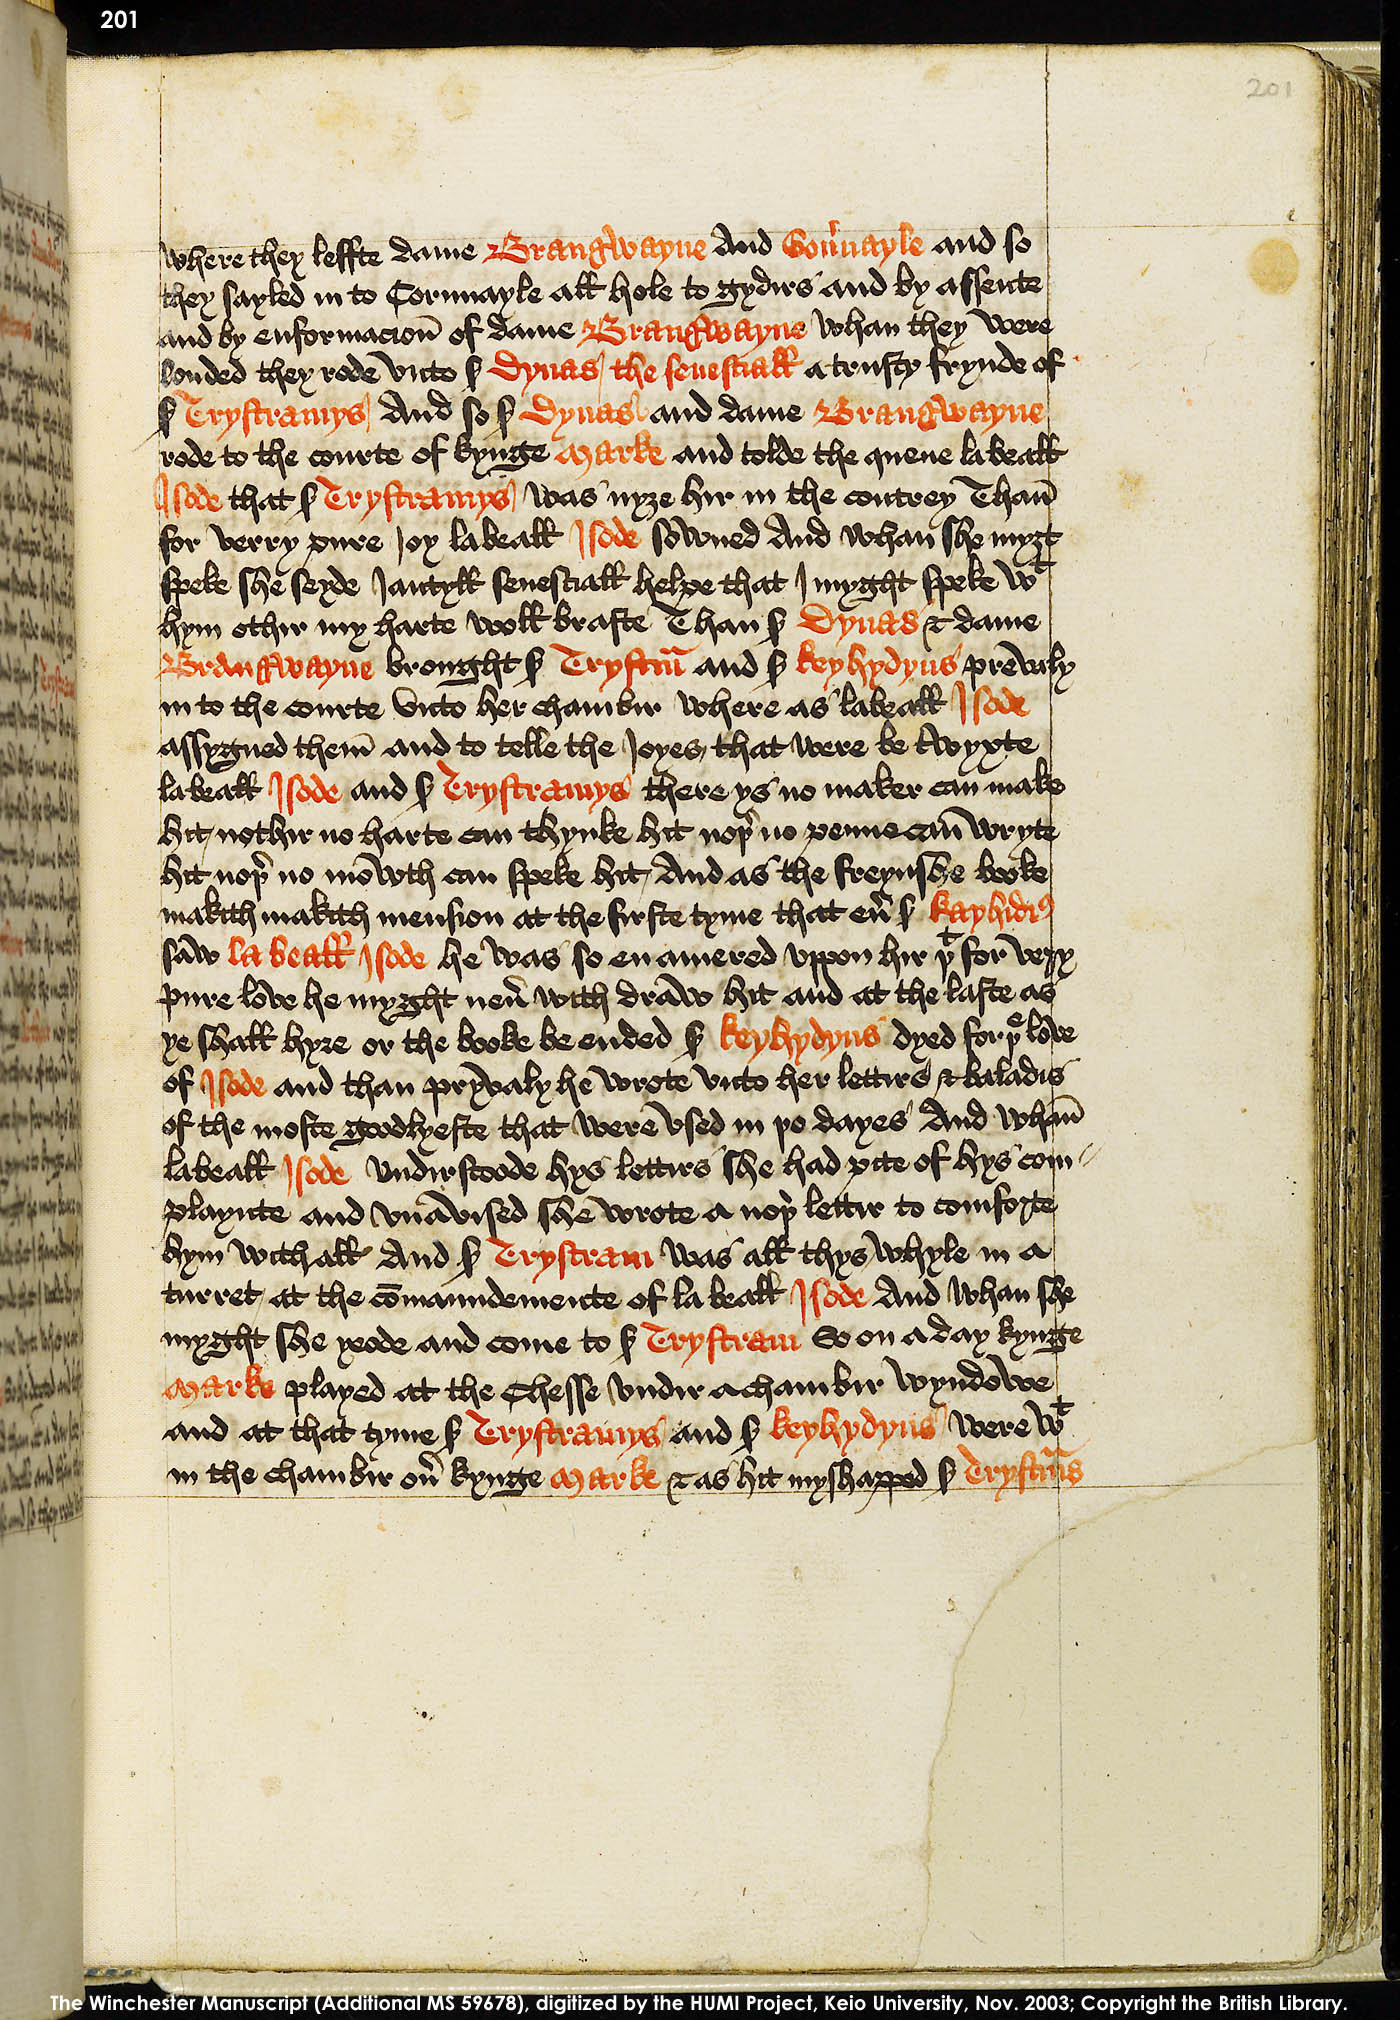 201
201
where they leffte dame Brangwayne And Gou'nayle and so
they sayled in to Cornwayle all hole to gydirs and by assente
and by enformacion̄ of dame Brangwayne whan they were
londed they rode vnto ẛ Dynas the senesciall a trusty frynde of
ẛ Trystramys And so ẛ Dynas and dame Brangwayne
rode to the courte of kynge Marke and tolde the quene la beall
Isode that ẛ Trystramys was nyȝe hir in the contrey Than̄
for verry pure Joy la beall Isode sowned And whan she myȝt
speke she seyde Jantyll senesciall helpe that I myght speke wᵗ
hym othir my harte woll braste Than ẛ Dynas & dame
Brangwayne brought ẛ Trystrm̄ and ẛ keyhydyus prevaly
in to the courte vnto her chambir where as la beall Isode
assygned them̄ and to telle the Joyes that were be twyxte
la beall Isode and ẛ Trystramys there ys no maker can make
hit nothir no harte can thynke hit noþ' no penne can̄ wryte
hit noþ' no mowth can speke hit And as the freynshe booke
makith makith mension at the firste tyme that eu' ẛ kayhidiꝰ
saw la beall Isode he was so enamered vppon hir þᵗ for very
pure love he myght neu' with draw hit and at the laste as
ye shall hyre or the booke be ended ẛ keyhydyus dyed for þᵉ love
of Isode and than pryvaly he wrote vnto her lettirs & baladis
of the moste goodlyeste that were vsed in þo dayes And whan̄
la beall Isode vndirstoode hys lettirs she had pite of hys com
playnte and vnavised she wrote a noþ' lettir to comforte
hym with all And ẛ Trystram was all thys whyle in a
turret at the cōmaundemente of la beall Isode And whan she
myght she yeode and come to ẛ Trystram So on a day kynge
Marke played at the Chesse vndir a chambir wyndowe
and at that tyme ẛ Trystramys and ẛ keyhydyus were wᵗ
in the chambir ou' kynge Marke & as hit myshapped ẛ Trystrm̄s
The Winchester Manuscript (Additional MS 59678), digitized by the HUMI Project, Keio University, Nov. 2003; Copyright the British Library.